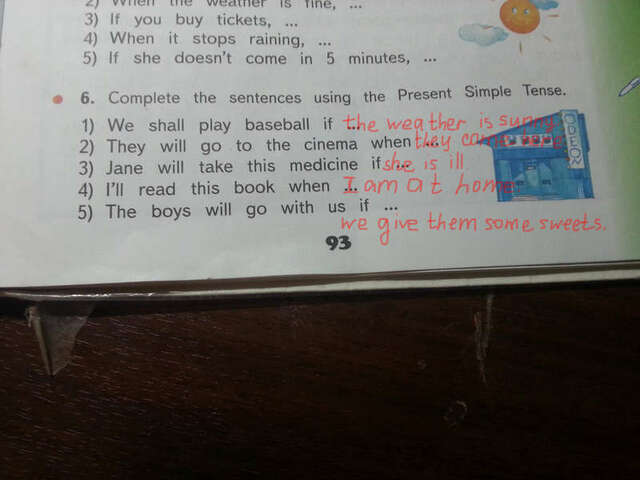 2) When the weather is fine, ...
3) If you buy tickets, ...
4) When it stops raining, ...
5) If she doesn't come in 5 minutes, ...
6. Complete the sentences using the Present Simple Tense.
1) We shall play baseball if ... the weather is sunny
2) They will go to the cinema when ... they come
3) Jane will take this medicine if ... she is ill
4) I'll read this book when ... I am at home
5) The boys will go with us if ...
we give them some sweets.
93